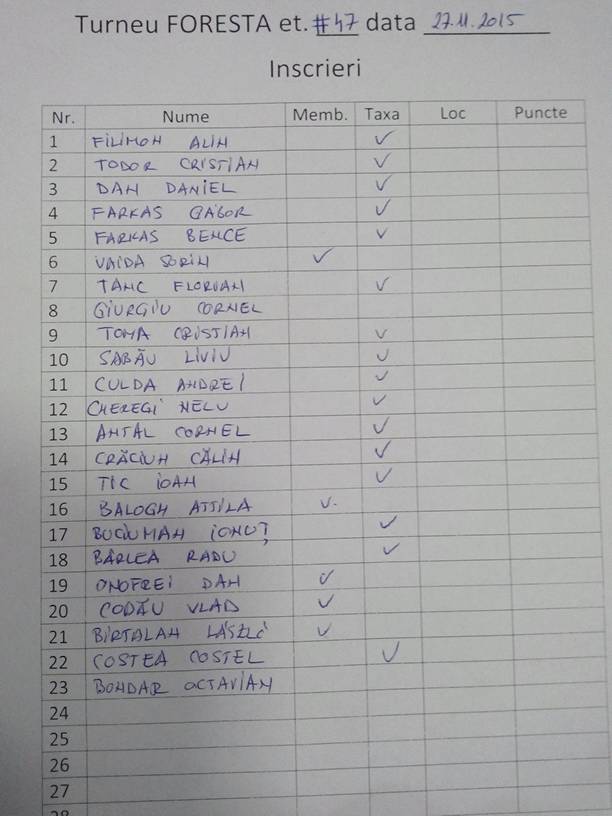 Turneu FORESTA et. #47 data 27.11.2015
Inscrieri
Nr. Nume Memb. Taxa Loc Puncte
1 FILIMON ALIN ✓
2 TODOR CRISTIAN ✓
3 DAN DANIEL ✓
4 FARKAS GABOR ✓
5 FARKAS BENCE ✓
6 VAIDA SORIN ✓
7 TANC FLORIAN ✓
8 GIURGIU CORNEL
9 TOMA CRISTIAN ✓
10 SABĂU LIVIU ✓
11 CULDA ANDREI ✓
12 CHEREGI NELU ✓
13 ANTAL CORNEL ✓
14 CRĂCIUN CĂLIN ✓
15 TIC IOAN ✓
16 BALOGH ATTILA ✓
17 BUCIUMAN IONUȚ ✓
18 BÂRLEA RADU ✓
19 ONOFREI DAN ✓
20 CODĂU VLAD ✓
21 BIRTALAN LÁSZLÓ ✓
22 COSTEA COSTEL ✓
23 BONDAR OCTAVIAN
24
25
26
27
28